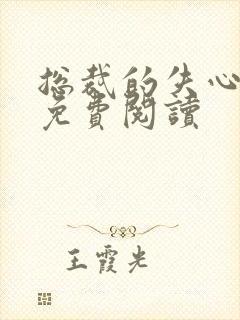 总裁的失心
免費閱讀
王霞光